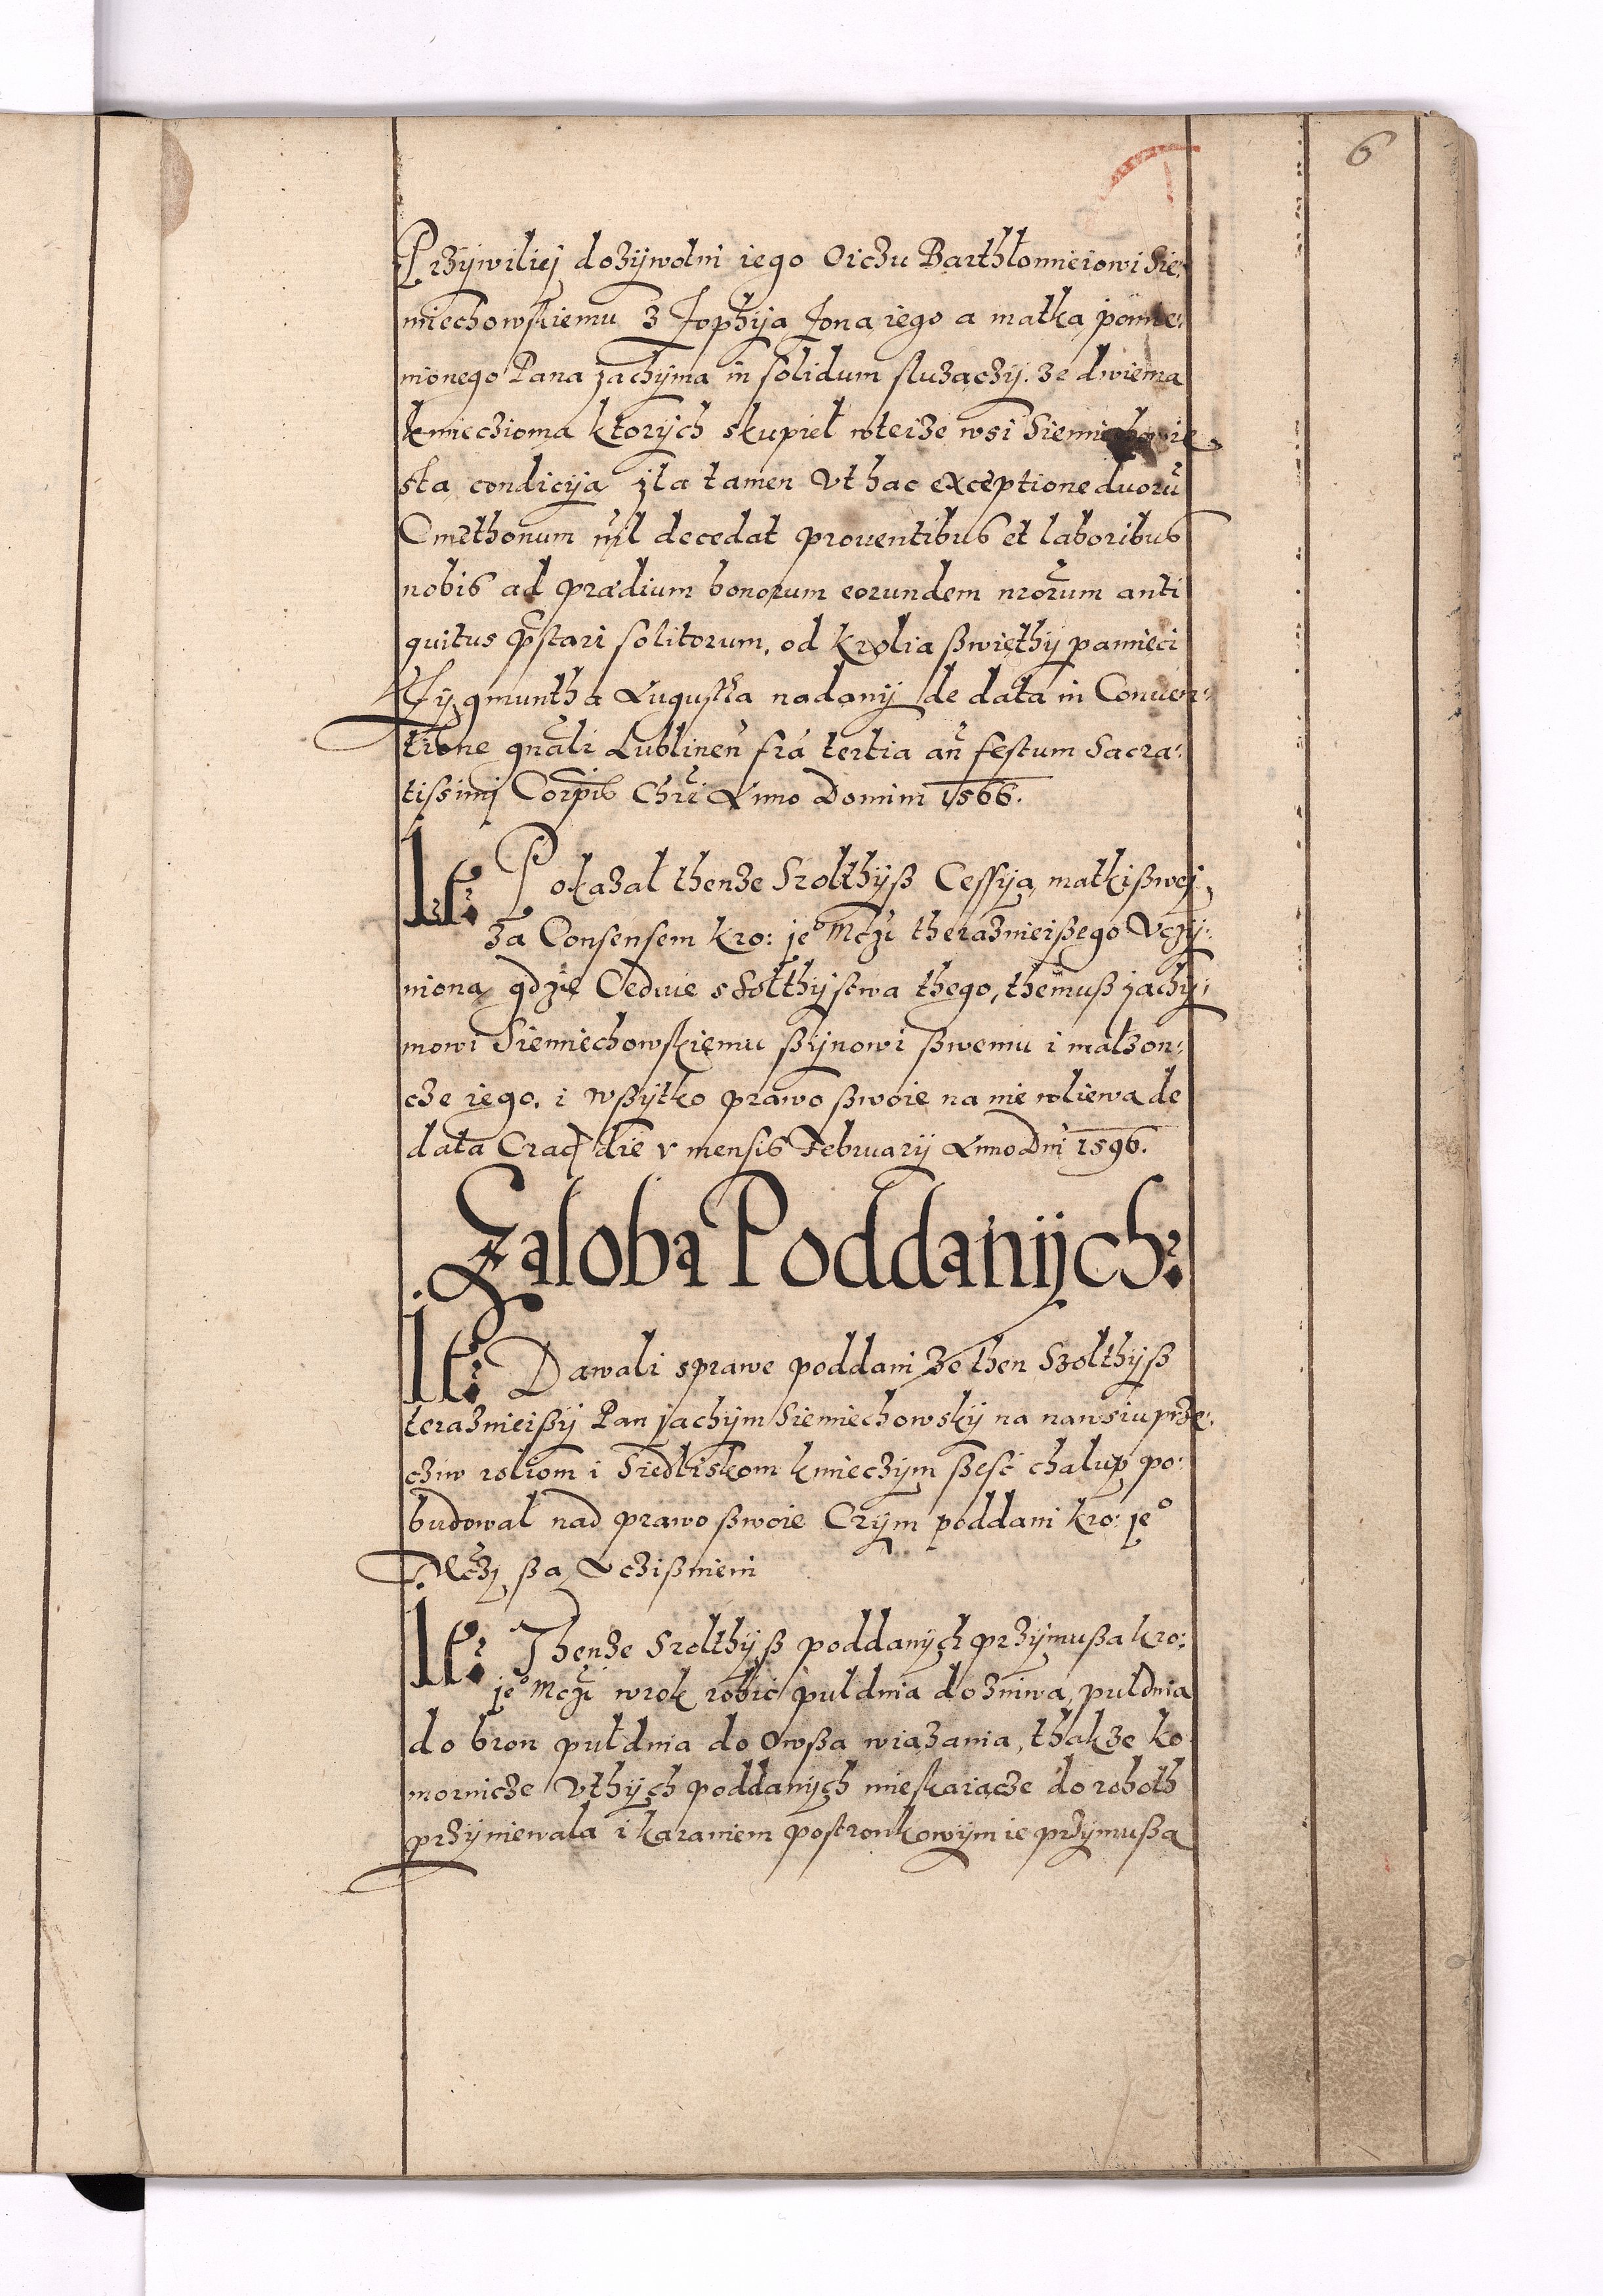 6
Przÿwiliej dożÿwotni iego Oiczu Barthłomieiowi Sie:
miechowskiemu z Zophÿją żoną iego a matką pomie:
nionego Pana Jachÿma in solidum służączÿ. ze dwiema
kmieczioma ktorÿch skupieł wteize wsi Siemiechowie
stą condicÿją ita tamen Vt hac exceptione duorũ
Cmethonum nil decedat prouentibus et laboribus
nobis ad prædium bonorum eorundem nrorum anti
quitus p̃stari solitorum, od krolia ßwięthÿ pamieci
Zÿgmuntha Augustha nadanÿ de data in Conuen:
tione gñali Lublineñ fr̃a tertia añ festum Sacra:
tissimj Corpis Chri Anno Domini 1566.
It: Pokazał thenże Szolthÿß Cessÿją matki ßwej,
za Consensem kro: je° Mczi theraznieißego Vczÿ:
nioną gdzie Oedme sołthÿstwa thego, themuß jachÿ:
mowi Siemiechowskiemu ßÿnowi ßwemu i małzon:
cze iego. i wßÿtko prawo ßwoie na nie wliewa de
data Crac̃ die v mensis Februarÿ Anno Dñi 1596.
Załoba Poddanÿch:
It: Dawali sprawe poddani że then Szolthÿß
teraznieißÿ Pan jachÿm Siemiechowskÿ na nawsiu prze:
cziw roliom i Siedliskom kmieczÿm ßesć chalup po:
budował nad prawo ßwoie Czÿm poddani kro: je°
Mczj ßą Vczißnieni
It: Thenże Szolthÿß poddanÿch przÿmußa kro:
je° Mczi wrok robić pułdnia do żniwa, pułdnia
do bron pułdnia do Owßa wiązania, thakze ko
mornicze Vthÿch poddanÿch mieskaiącze do roboth
przÿniewala i karaniem postronkowÿm ie przÿmußa